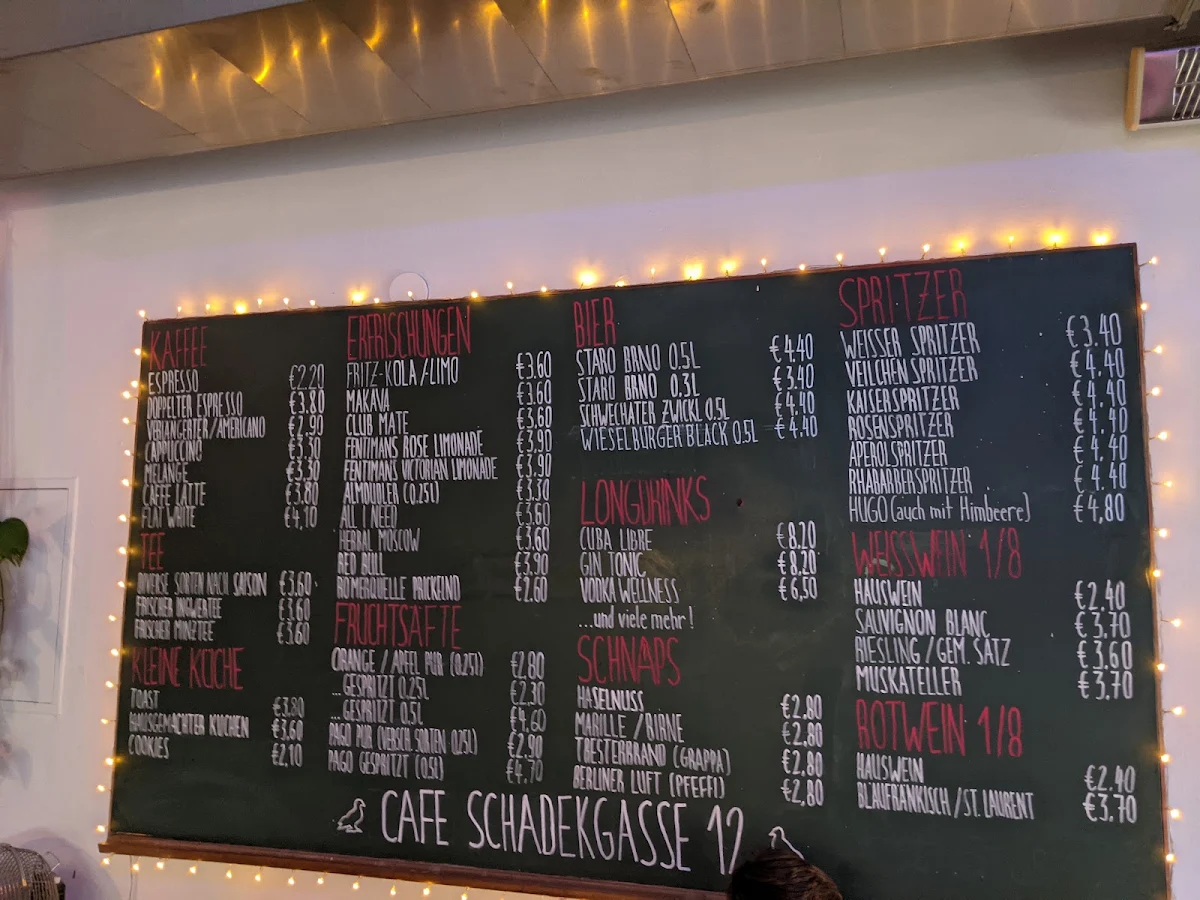 KAFFEE
ESPRESSO €2.20
DOPPELTER ESPRESSO €3.80
VERLÄNGERTER/AMERICANO €2.90
CAPPUCCINO €3.30
MELANGE €3.30
CAFFE LATTE €3.80
FLAT WHITE €4,10
TEE
DIVERSE SORTEN NACH SAISON €3.60
FRISCHER INGWERTEE €3.60
FRISCHER MINZTEE €3.60
KLEINE KÜCHE
TOAST €3.80
HAUSGEMACHTER KUCHEN €3.60
COOKIES €2,10
ERFRISCHUNGEN
FRITZ-KOLA/LIMO €3.60
MAKAVA €3.60
CLUB MATE €3.60
FENTIMANS ROSE LIMONADE €3,90
FENTIMANS VICTORIAN LIMONADE €3.90
ALMDUDLER (0.25l) €3.30
ALL I NEED €3.60
HERBAL MOSCOW €3.60
RED BULL €3.90
RÖMERQUELLE PRICKELND €2.60
FRUCHTSÄFTE
ORANGE / APFEL PUR (0.25l) €2.80
... GESPRITZT 0.25L €2.30
... GESPRITZT 0.5L €4.60
PAGO PUR (VERSCH. SORTEN 0.25l) €2.90
PAGO GESPRITZT (0.5l) €4.70
BIER
STARO BRNO 0.5L €4.40
STARO BRNO 0.3L €3.40
SCHWECHATER ZWICKL 0.5L €4.40
WIESELBURGER BLACK 0.5L €4.40
LONGDRINKS
CUBA LIBRE €8.20
GIN TONIC €8.20
VODKA WELLNESS €6,50
...und viele mehr!
SCHNAPS
HASELNUSS €2.80
MARILLE / BIRNE €2.80
TRESTERBRAND (GRAPPA) €2,80
BERLINER LUFT (PFEFFI) €2,80
SPRITZER
WEISSER SPRITZER €3.40
VEILCHEN SPRITZER €4,40
KAISERSPRITZER €4,40
ROSENSPRITZER €4.40
APEROLSPRITZER €4,40
RHABARBERSPRITZER €4.40
HUGO (auch mit Himbeere) €4,80
WEISSWEIN 1/8
HAUSWEIN €2.40
SAUVIGNON BLANC €3,70
RIESLING / GEM. SATZ €3.60
MUSKATELLER €3,70
ROTWEIN 1/8
HAUSWEIN €2.40
BLAUFRÄNKISCH / ST. LAURENT €3,70
CAFE SCHADEKGASSE 12